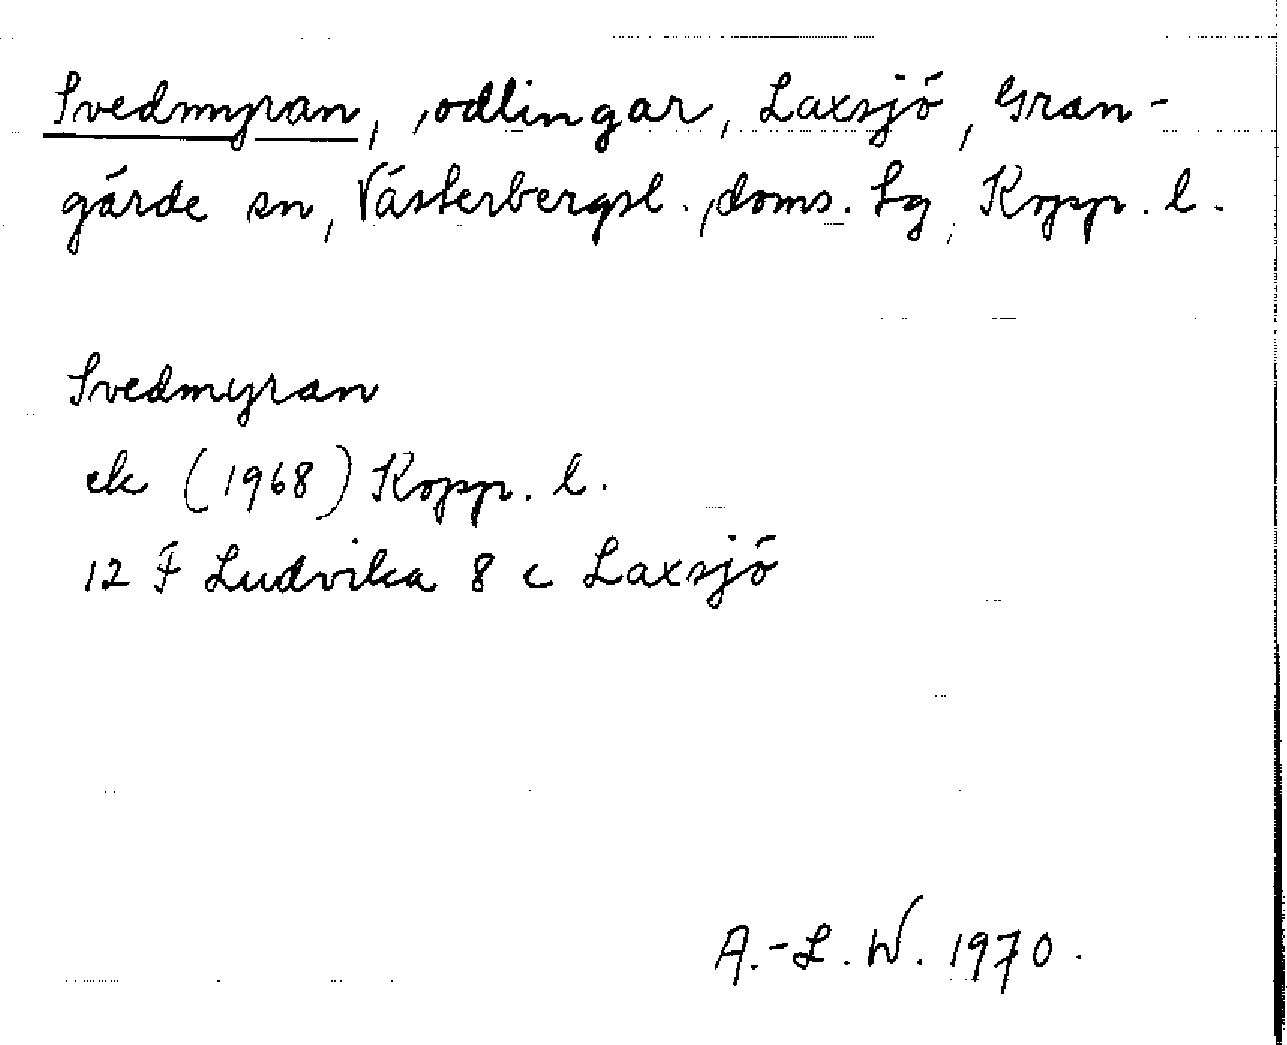 Svedmyran, odlingar, Laxsjö, Gran-
gärde sn, Västerbergsl. doms. tg, Kopp. l.
Svedmyran
ek (1968) Kopp. l.
12 F Ludvika 8 c Laxsjö
A.-L. W. 1970.